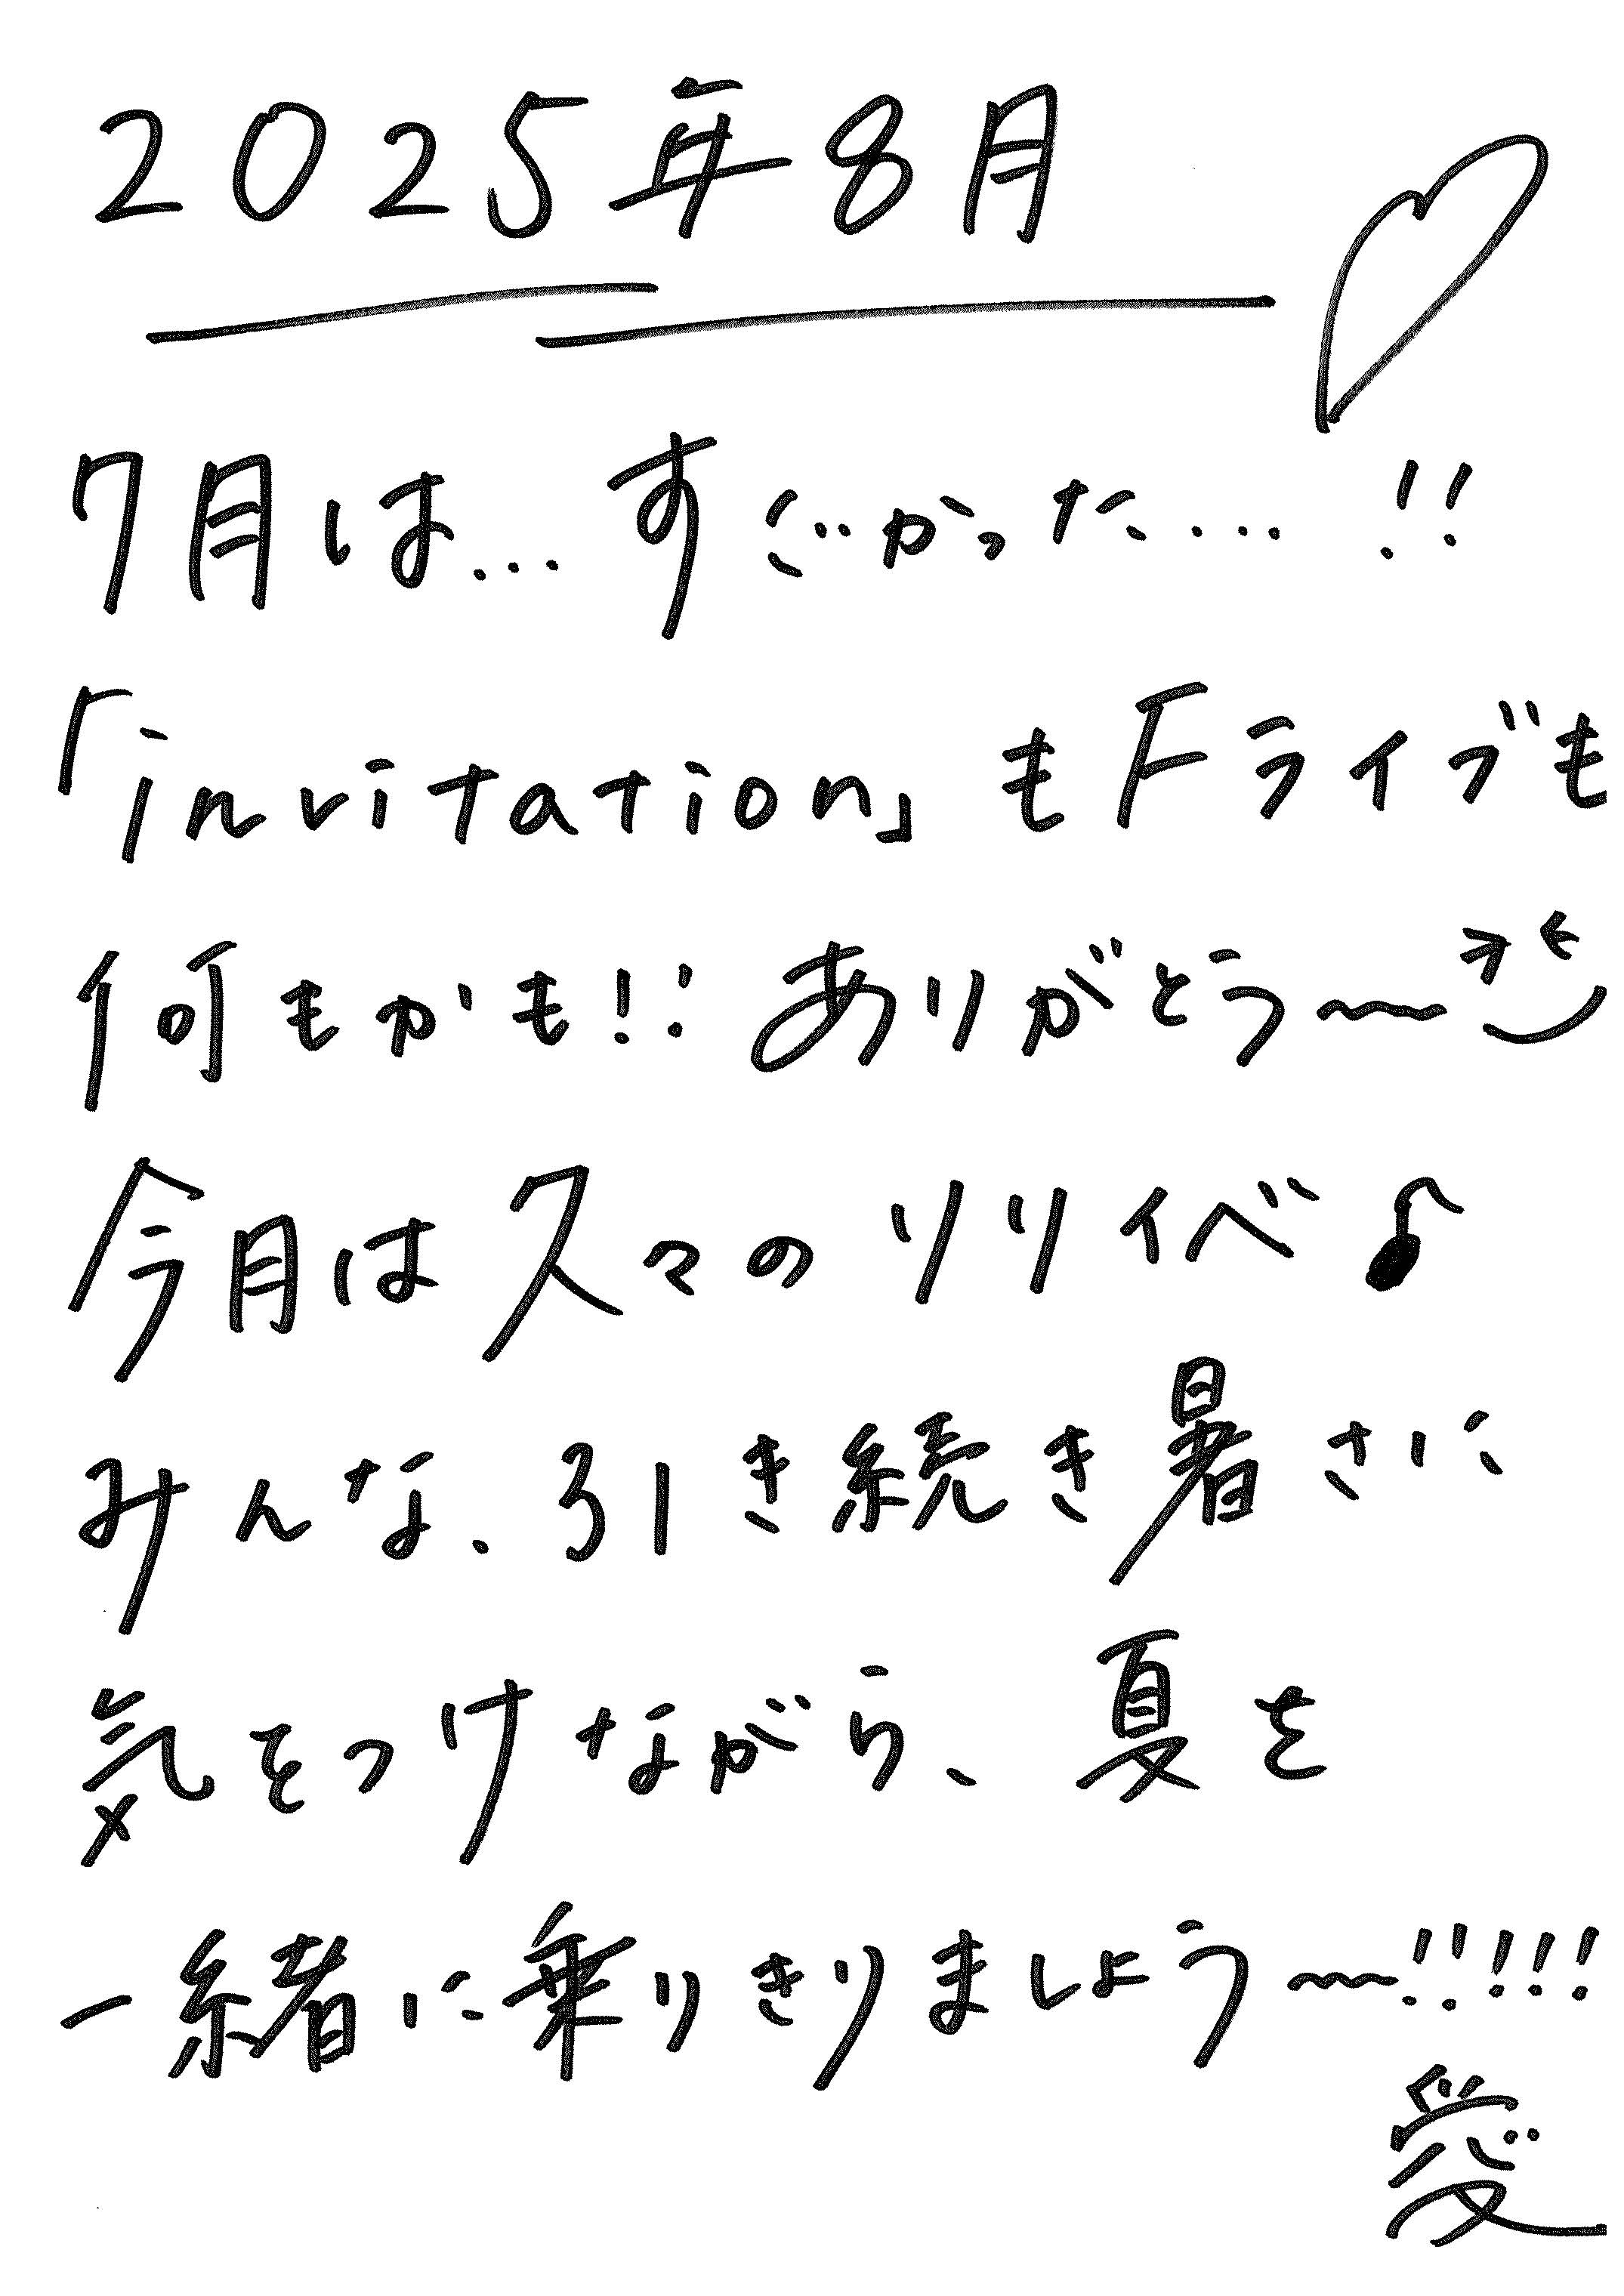 2025年8月
7月は…すごかった…!!
「invitation」もFライブも
何もかも!!ありがとう〜
今月は久々のリリイベ♪
みんな、引き続き暑さに
気をつけながら、夏を
一緒に乗りきりましょう〜!!!!!
愛